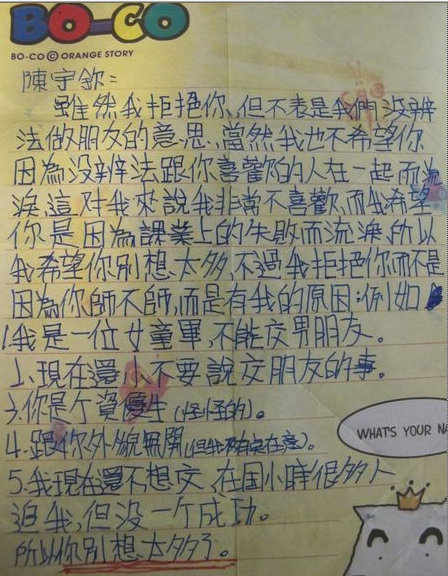 BO-CO
BO-CO © ORANGE STORY
陳宇欽:
雖然我拒絕你、但不表是我們没辦
法做朋友的意思,當然我也不希望你
因為没辦法跟你喜歡的人在一起而流
淚,這対我來說我非常不喜歡,而我希望
你是因為課業上的失敗而流淚,所以
我希望你別想太多,不過我拒絕你而不是
因為你師不師,而是有我的原因:例如
1.我是一位女童軍,不能交男朋友。
2、現在還小不要說交朋友的事。
3.你是个資優生(怪怪的)。
4.跟你外貌無関(但我在意)。
5.我現在還不想交,在国小時很多人
追我,但没一个成功。
所以你別想太多了。
WHAT'S YOUR NA